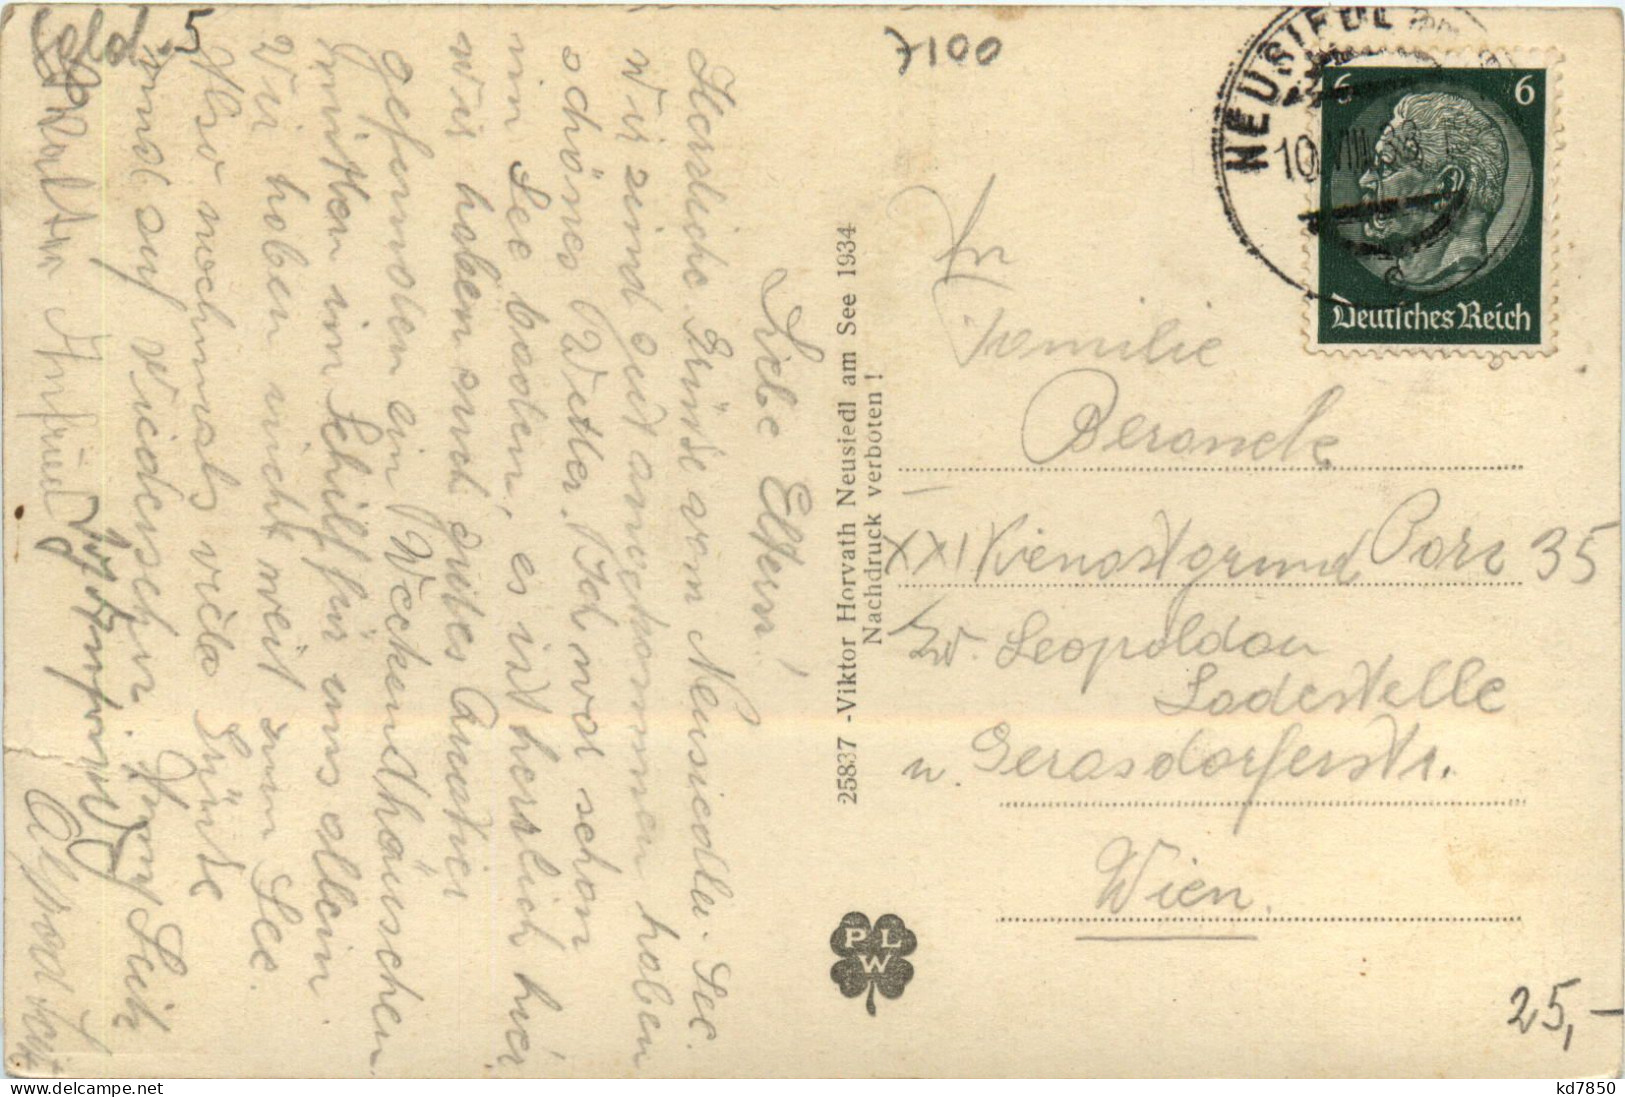 Gold 5
7100
NEUSIEDL
10. VIII. 39
c
6 6
Deutsches Reich
Liebe Eltern!
Herzliche Grüße vom Neusiedler-See.
Wir sind gut angekommen haben
schönes Wetter. Ich war schon
im See baden, es ist herrlich hier
Wir haben auch gutes Quartier
gefunden ein Weekendhäuschen
mitten im Schilf für uns allein.
Wir haben nicht weit zum See.
Also nochmals viele Grüße
und auf Wiedersehen
25837 -Viktor Horvath Neusiedl am See 1934
Nachdruck verboten!
PLW
An
Familie
Beranek
XXI Kienastgrund Parz 35
Zw. Leopoldau
Ladestelle
u. Gerasdorferstr.
Wien.
25,-
kd7850